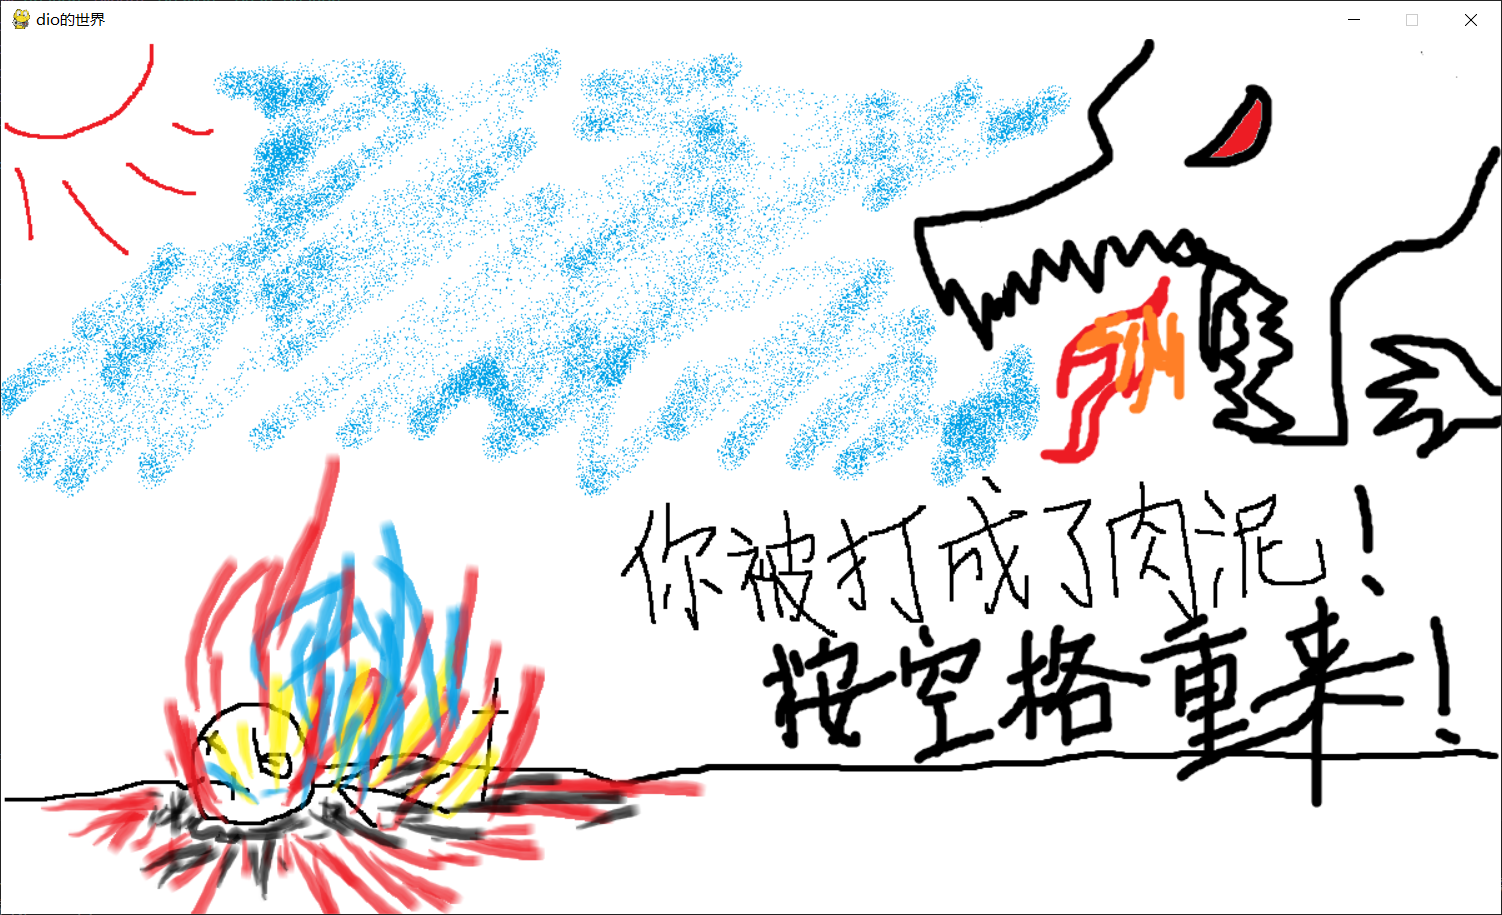 dio的世界
你被打成了肉泥！
按空格重来！